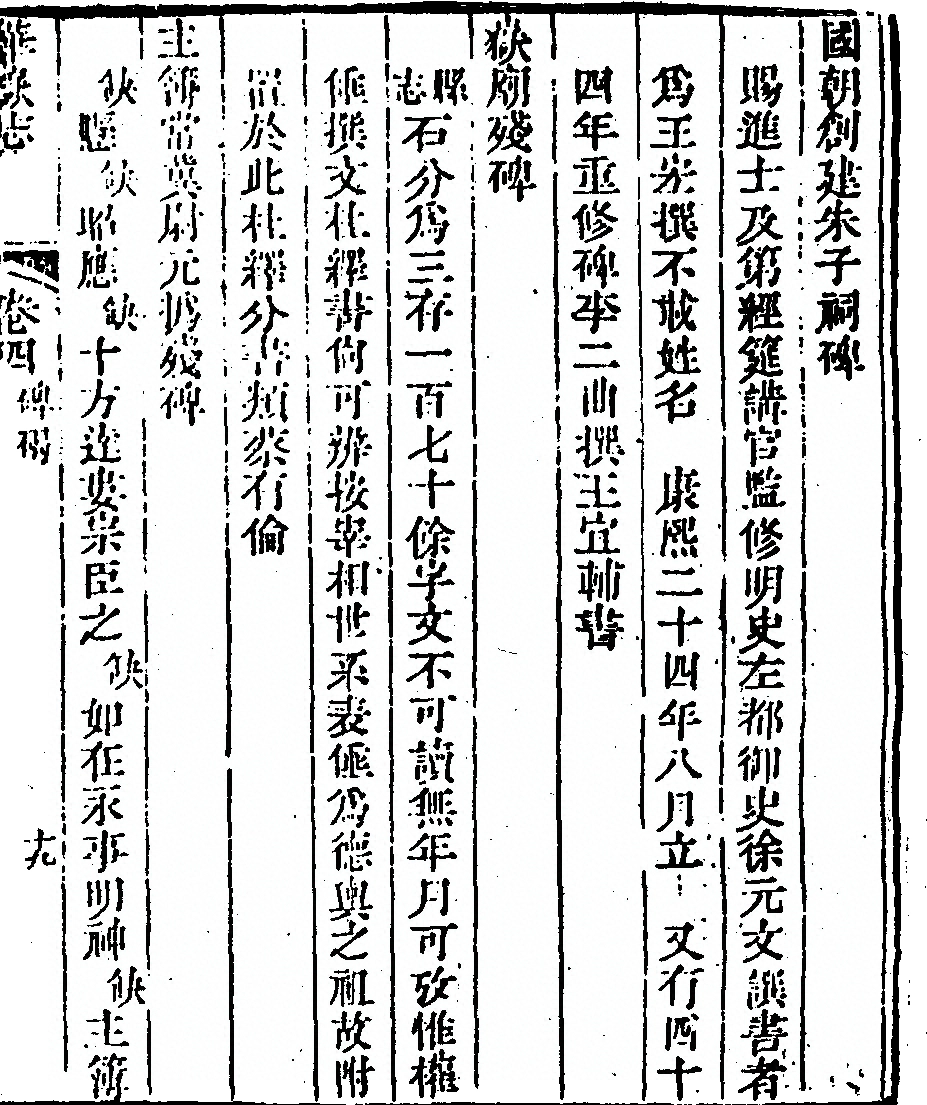 國朝創建朱子祠碑
賜進士及第經筵講官監修明史左都御史徐元文譔書者
爲王宏撰不載姓名 康熙二十四年八月立 又有四十
四年重修碑李二曲撰王宜輔書
嶽廟殘碑
縣志石分爲三存一百七十餘字文不可讀無年月可攷惟權
倕撰文杜繹書尚可辨按宰相世系表倕爲德輿之祖故附
置於此杜繹分書頗爲有倫
主簿常冀尉元撝殘碑
缺懸缺昭應缺十方達婁杲臣之缺如在永事明神缺主簿
華嶽志 卷四 碑碣 十九